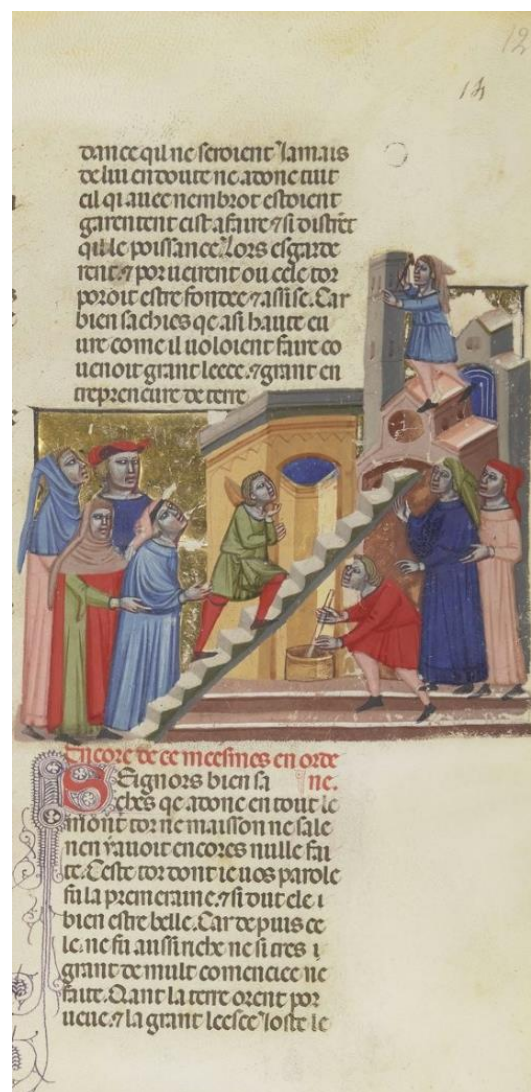 12
14
dance qil ne seroient Jamais
de lui en doute ne adonc tuit
cil qi auec nembrot estoient
garentent cist afaire ⁊ si distrẽt
qil le poissance. Lors esgarde
rent ⁊ por ueirent ou cele tor
poroit estre fondee ⁊ assise. Car
bien sachies qe asi haute eu
ure come il uoloient faire co
uenoit grant leece. ⁊ grant en
trepreneure de terre
Encore de ce meesmes en orde
Seignors bien sa ne.
ches qe adonc en tout le
mont tor ne maisson ne sale
nen i auoit encores nulle fai
te. Ceste tor dont ie uos parole
fu la premeraine. ⁊ si dut ele i
bien estre belle. Car de puis ce
le. ne fu aussi riche ne si tres i
grant de mult comencice ne
faite. Qant la terre orent por
ueue. ⁊ la grant leesce Joste le